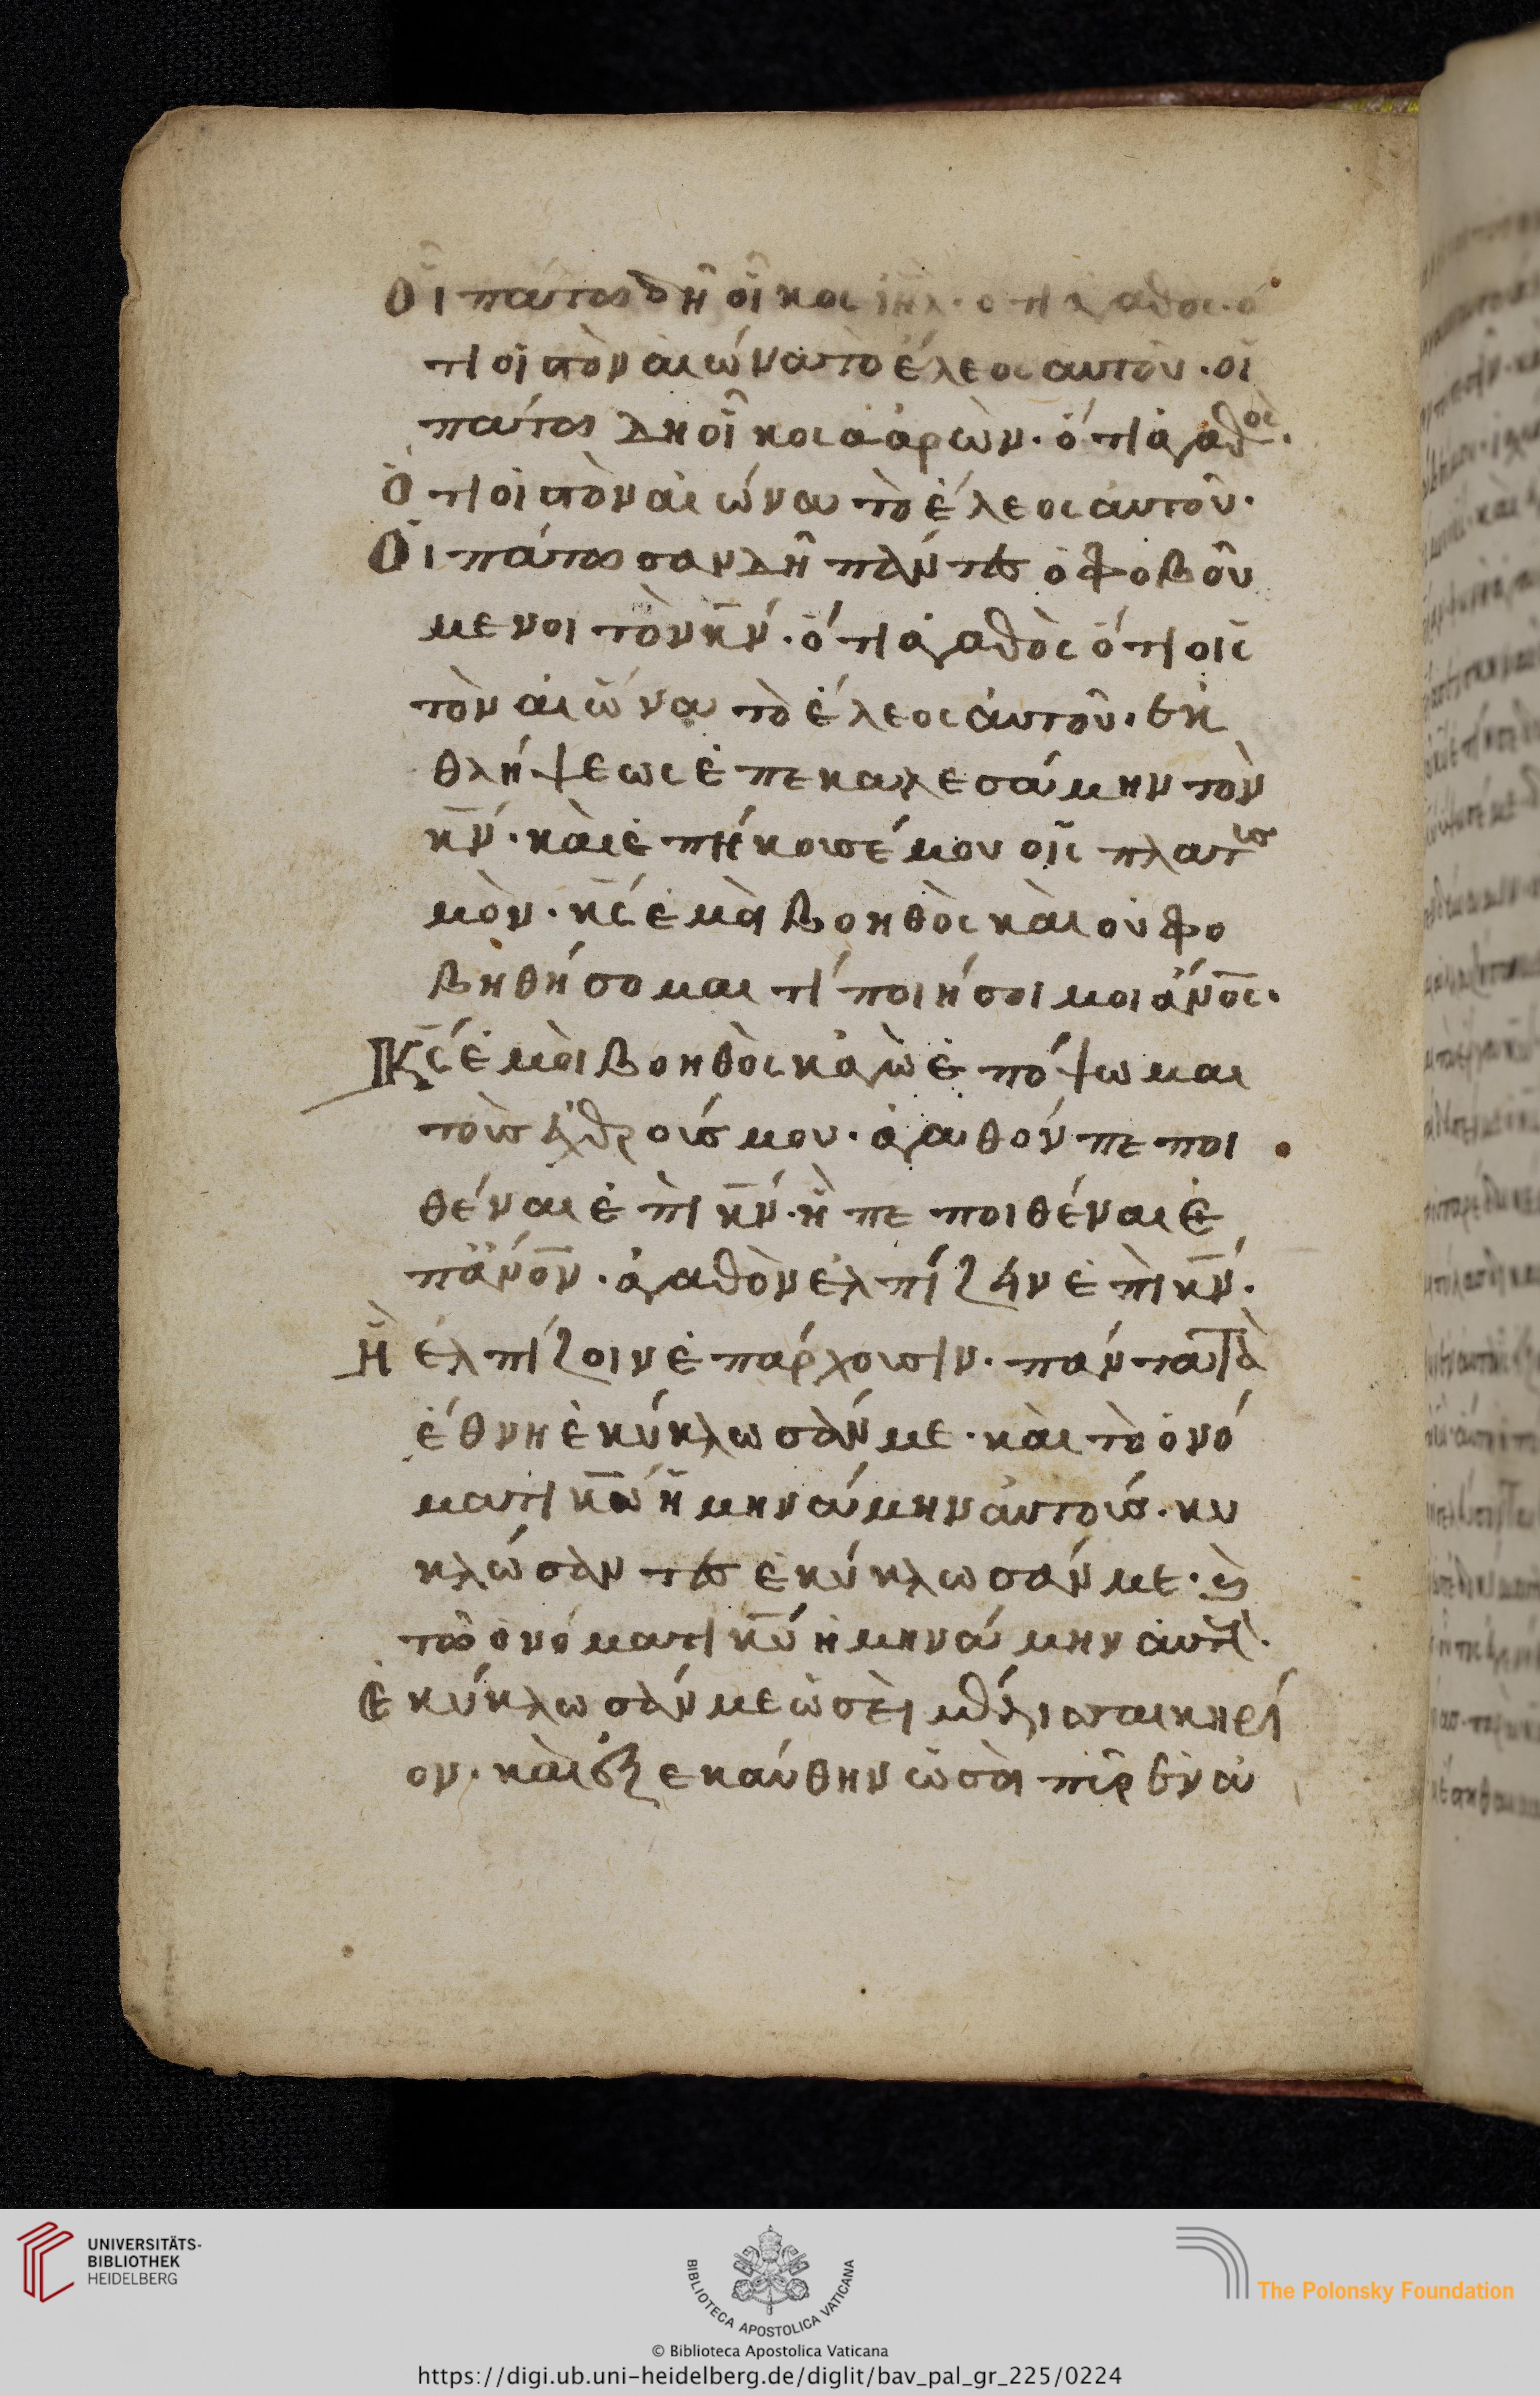 Οἶπάτος δὴ οἶκος ιηλ· ὅτι ἀγαθος· ὅ
τι οἰς τὸν αἰώνα τὸ ἔλεος αυτοῦ· οἶ
πάτος δὴ οἶκος ἀαρὼν· ὅτι ἀγαθος·
Ὅτι οἰς τὸν αἰώνα τὸ ἔλεος αὐτοῦ·
Οἶπάτοσαν δὴ πάντες ὁ φοβοῦ
μενοι τὸν κ̅ν̅· ὅτι ἀγαθὸς ὅτι οἰς
τὸν αἰῶνα τὸ ἔλεος αὐτοῦ· ἐκ
θλήψεως ἐπεκαλεσάμην τὸν
κ̅ν̅· κὰι ἐπήκουσέ μου οἰς πλατυσ
μὸν· κ̅ς̅ ἐμὸι βοηθὸς κὰι οὐ φο
βηθήσομαι τί ποιήσοι μοι ἄν̅ο̅ς̅·
Κ̅ς̅ ἐμὸι βοηθὸς κἀγὼ ἐπόψωμαι
τοὺς ἐχθρούς μου· ἀγαθόν πεποι
θέναι ἐπὶ κ̅ν̅· ἢ πεποιθέναι ἐ
π' ἄν̅ο̅ν̅· ἀγαθὸν ἐλπίζειν ἐπὶ κ̅ν̅·
Ἢ ἐλπίζοιν ἐπ' ἀρχουσιν· πάντα τὰ
ἔθνη ἐκύκλωσάν με· κὰι τὸ ὀνό
ματι κ̅υ̅ ἠμηνάμην αὐτούς· κυ
κλώσαντες ἐκύκλωσάν με· κ̀
τῶ ὀνόματι κ̅υ̅ ἠμηνάμην αὐτοὺς·
Ἐκύκλωσάν με ὡσὲι μέλισσαι κηρί
ον· κὰι ἐξεκαύθην ὡσὰι πῦρ ἐν ἀ
UNIVERSITÄTS-
BIBLIOTHEK
HEIDELBERG
BIBLIOTECA APOSTOLICA VATICANA
The Polonsky Foundation
© Biblioteca Apostolica Vaticana
https://digi.ub.uni-heidelberg.de/diglit/bav_pal_gr_225/0224